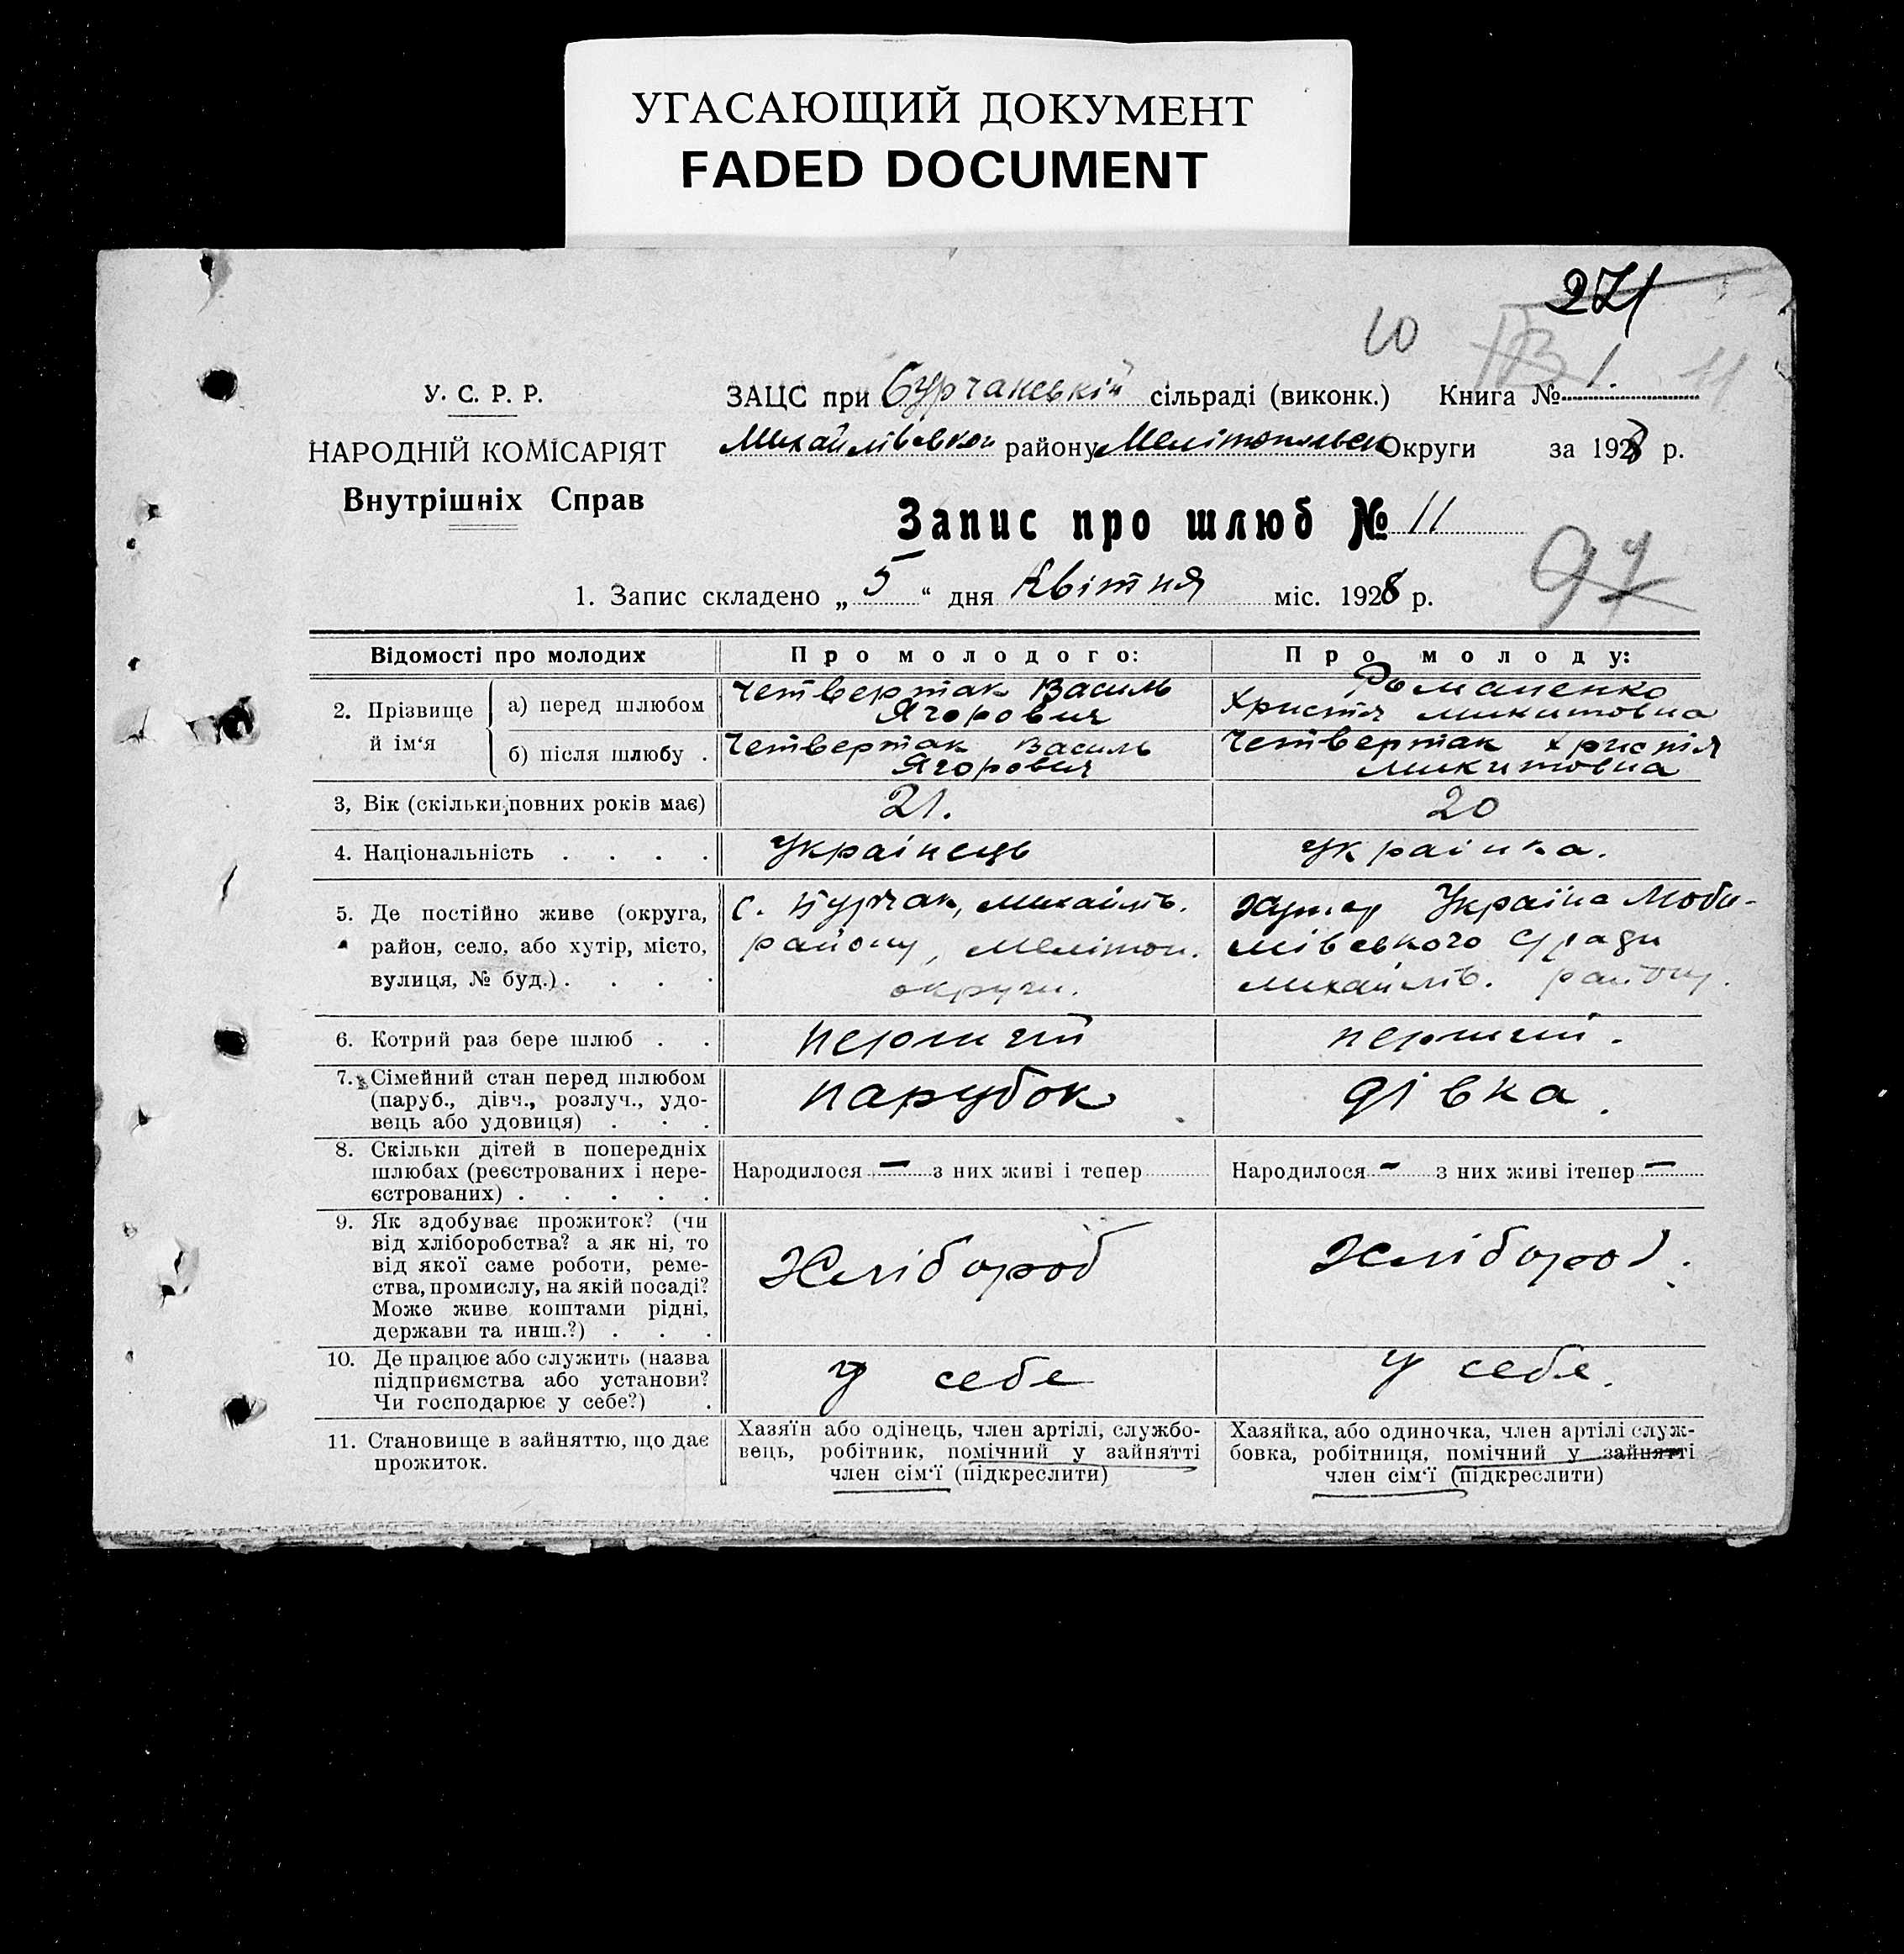 УГАСАЮЩИЙ ДОКУМЕНТ
FADED DOCUMENT
271
10
11
У. С. Р. Р.
НАРОДНІЙ КОМІСАРІЯТ
Внутрішніх Справ
ЗАЦС при Бурчакській сільраді (виконк.) Книга № 1.
Михайлівської району Мелітопольськ Округи за 1928 р.
Запис про шлюб № 11
97
1. Запис складено „ 5 “ дня Квітня міс. 1928 р.
Відомості про молодих
Про молодого:
Про молоду:
2. Прізвище й ім‘я
а) перед шлюбом
Четвертак Василь
Ягорович
Романенко
Христя Микитовна
б) після шлюбу .
Четвертак Василь
Ягорович
Четвертак Христя
Микитовна
3, Вік (скільки повних років має)
21.
20
4. Національність . . . .
Українець
Українка.
5. Де постійно живе (округа,
район, село, або хутір, місто,
вулиця, № буд.) . . . .
с. Бурчак, Михайлів.
району, Мелітоп.
округи.
хутор Україна Люби-
мівського с/ради
Михайлів. району.
6. Котрий раз бере шлюб . .
перший
перший.
7. Сімейний стан перед шлюбом
(паруб., дівч., розлуч., удо-
вець або удовиця) . . .
парубок
дівка.
8. Скільки дітей в попередніх
шлюбах (реєстрованих і нере-
єстрованих) . . . . .
Народилося — з них живі і тепер
Народилося - з них живі ітепер —
9. Як здобуває прожиток? (чи
від хліборобства? а як ні, то
від якої саме роботи, реме-
ства, промислу, на якій посаді?
Може живе коштами рідні,
держави та инш.?) . . .
Хлібороб
Хлібороб.
10. Де працює або служить (назва
підприємства або установи?
Чи господарює у себе?) .
У себе
У себе.
11. Становище в зайняттю, що дає
прожиток.
Хазяїн або одінець, член артілі, службо-
вець, робітник, помічний у зайнятті
член сім‘ї (підкреслити)
Хазяйка, або одиночка, член артілі служ-
бовка, робітниця, помічний у зайнятті
член сім‘ї (підкреслити)